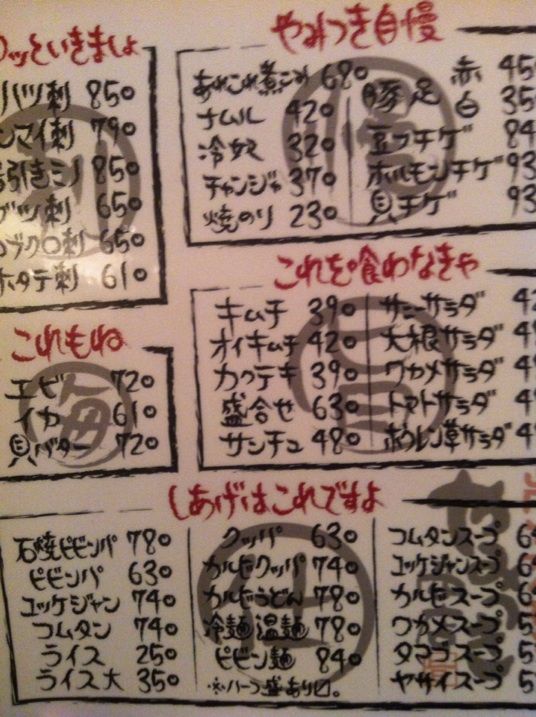 ッといきましょ
ハツ刺 850
ンマイ刺 790
引きミノ 850
ブツ刺 650
コブクロ刺 650
ホタテ刺 610
やみつき自慢
あれこれ煮こみ 680
ナムル 420
冷奴 320
チャンジャ 370
焼のり 230
豚足 赤 45
白 35
豆フチゲ 84
ホルモンチゲ 93
貝チゲ 93
これもね
エビ 720
イカ 610
貝バター 720
海
これを喰わなきゃ
キムチ 390
オイキムチ 420
カクテキ 390
盛合せ 630
サンチュ 480
サニーサラダ 4
大根サラダ 4
ワカメサラダ 4
トマトサラダ 4
ホウレン草サラダ 4
しあげはこれですよ
石焼ビビンパ 780
ビビンパ 630
ユッケジャン 740
コムタン 740
ライス 250
ライス大 350
クッパ 630
カルビクッパ 740
カルビうどん 780
冷麺 温麺 780
ビビン麺 840
※ハーフ盛あり〼。
コムタンスープ 6
ユッケジャンスープ 6
カルビスープ 6
ワカメスープ 5
タマゴスープ 5
ヤサイスープ 5